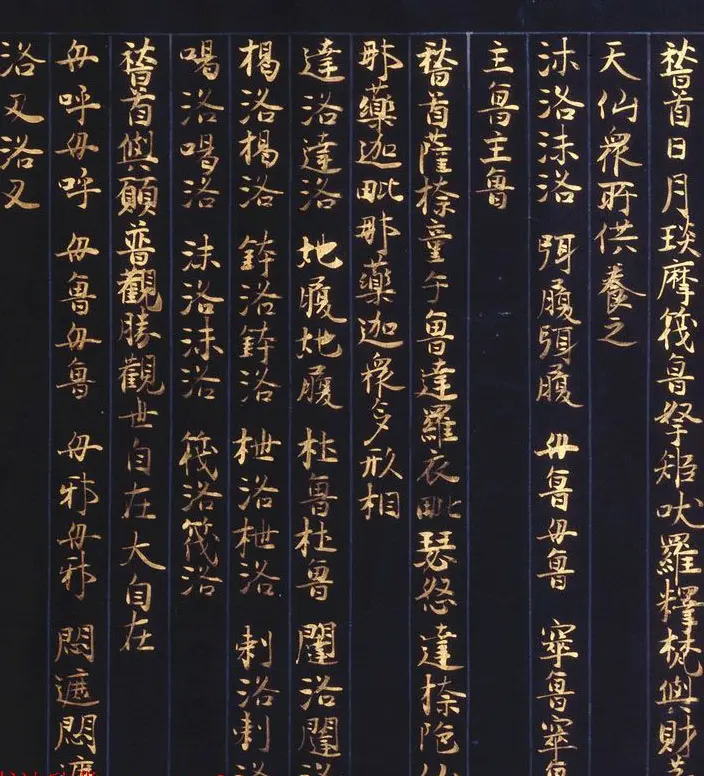 稽首日月琰摩筏魯拏矩吠羅釋梵與財
天仙衆所供養之
沫洛沫洛 弭履弭履 毋魯毋魯 窣魯窣魯
主魯主魯
稽首薩捺童子魯達羅衣毗瑟怒達捺陀仙
那藥迦毗那藥迦衆多形相
達洛達洛 地履地履 杜魯杜魯 闥洛闥洛
楬洛楬洛 鉢洛鉢洛 枻洛枻洛 刺洛刺洛
喝洛喝洛 沫洛沫洛 筏洛筏洛
稽首與願普觀勝觀世自在大自在
毋呼毋呼 毋魯毋魯 毋邪毋邪 悶遮悶遮
洛叉洛叉